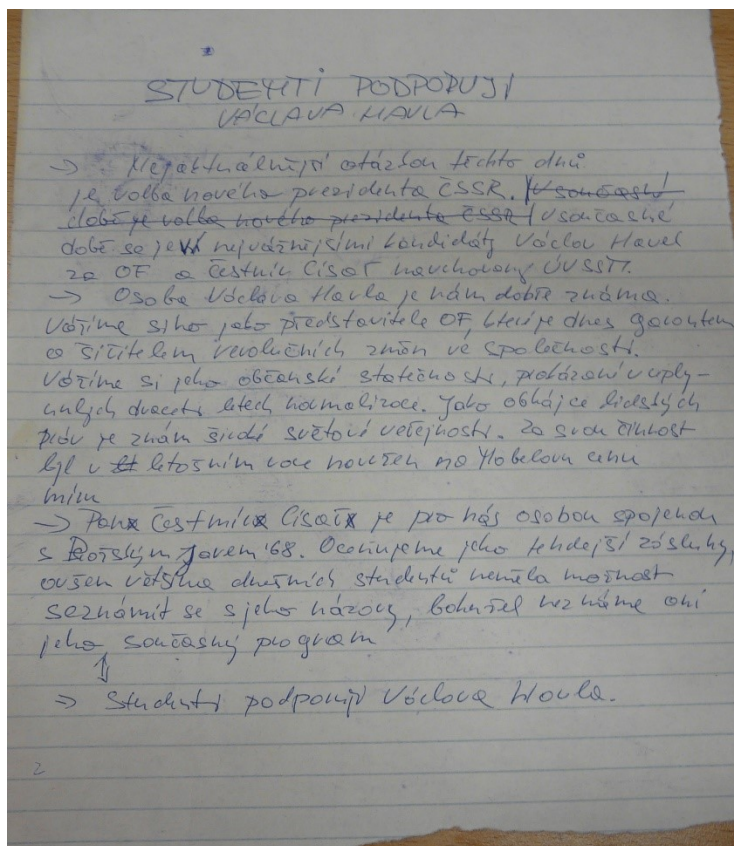 STUDENTI PODPORUJÍ
VÁCLAVA HAVLA
→ Nejaktuálnější otázkou těchto dnů
je volba nového prezidenta ČSSR. V současné
době je volba nového prezidenta ČSSR V současné
době se jeví nejvážnějšími kandidáty Václav Havel
za OF a Čestmír Císař navrhovaný ÚV SSM.
→ Osoba Václava Havla je nám dobře známa.
Vážíme si ho jako představitele OF, které je dnes garantem
a šiřitelem revolučních změn ve společnosti.
Vážíme si jeho občanské statečnosti, prokázané v uply-
nulých dvaceti letech normalizace. Jako obhájce lidských
práv je znám široké světové veřejnosti. Za svou činnost
byl v letošním roce navržen na Nobelovu cenu
míru
→ Pan Čestmír Císař je pro nás osobou spojenou
s Pražským jarem '68. Oceňujeme jeho tehdejší zásluhy,
ovšem většina dnešních studentů neměla možnost
seznámit se s jeho názory, bohužel neznáme ani
jeho současný program
⇓
→ Studenti podporují Václava Havla.
2